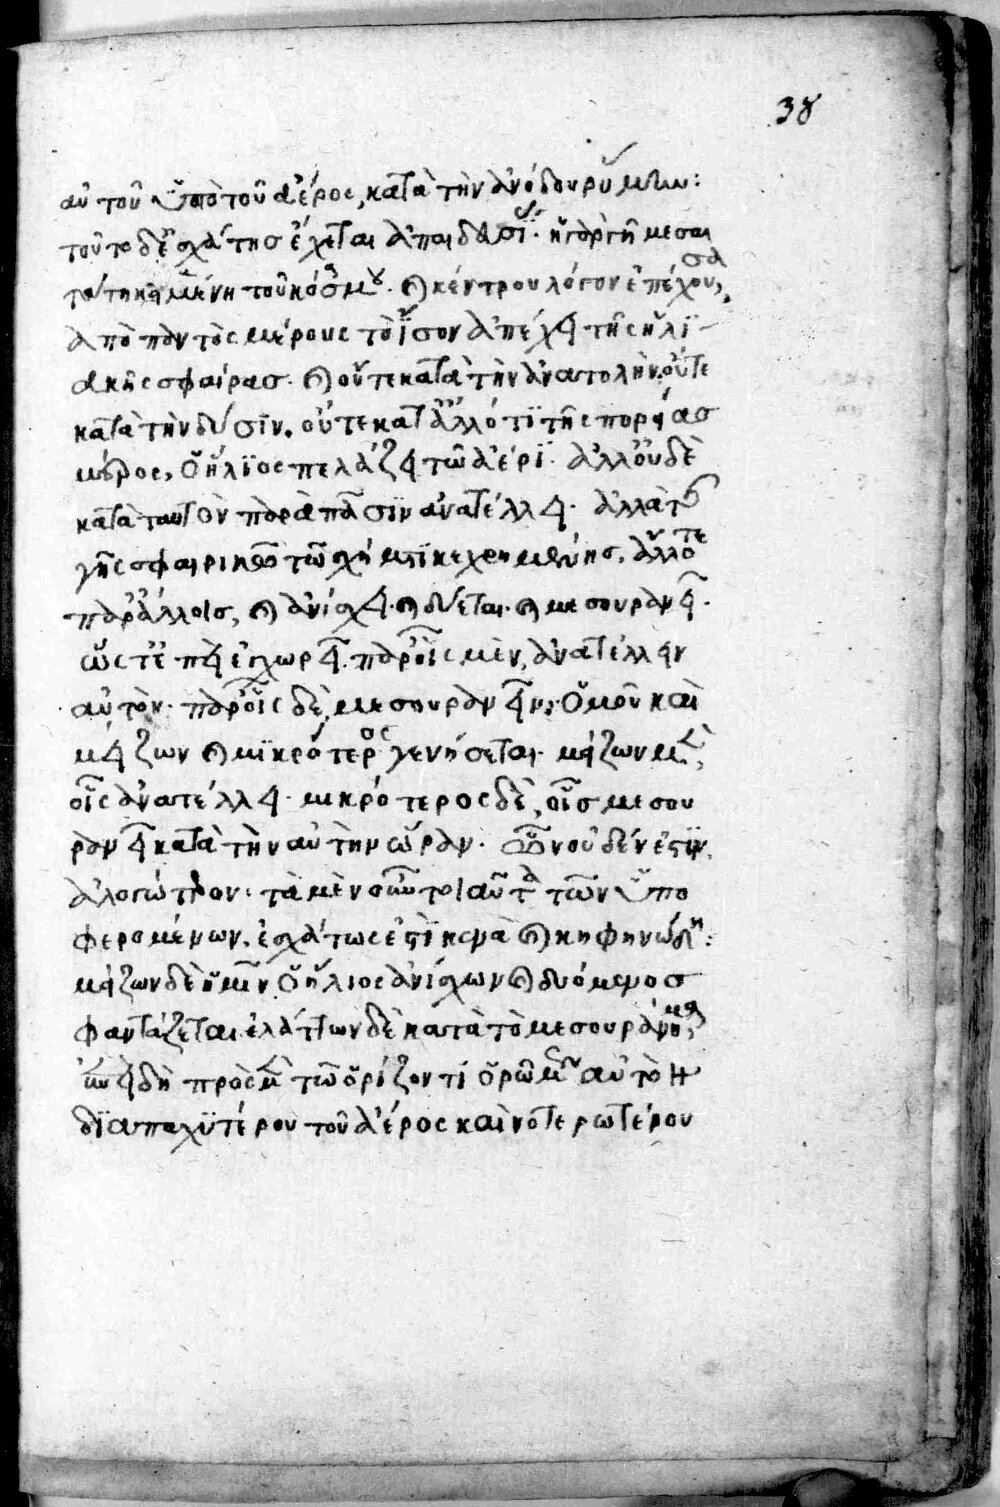 38
αὐτοῦ ὑπὸ τοῦ ἀέρος, κατὰ τὴν ἄνοδον ῥύμῃ:
τοῦτο δὲ ἐσχάτης ἔχεται ἀπαιδευσί· ἡ γὰρ γῆ μεσαι
τάτη κειμένη τοῦ κόσμου· καὶ κέντρου λόγον ἐπέχουσα,
ἀπὸ παντὸς μέρους τὸ ἴσον ἀπέχει τῆς ἡλι
ακῆς σφαίρας· καὶ οὔτε κατὰ τὴν ἀνατολὴν, οὔτε
κατὰ τὴν δύσιν, οὔτε κατ' ἄλλό τι τῆς πορείας
μέρος, ὁ ἥλιος πελάζει τῷ ἀέρι· ἀλλ' οὐδὲ
κατὰ ταυτὸν παρὰ πᾶσιν ἀνατέλλει· ἀλλὰ τῆς
γῆς σφαιρικῷ τῷ σχήματι κεχρημένης, ἄλλοτε
παρ' ἄλλοις, καὶ ἀνίσχει· καὶ δύεται· καὶ μεσουρανεῖ·
ὥστε πῇ ἐγχωρεῖ, παρ' οἷς μὲν, ἀνατέλλειν
αὐτὸν· παρ' οἷς δὲ, μεσουρανεῖν; ὁμοῦ καὶ
μείζων καὶ μικρότερος γενήσεται· μείζων μὲν,
οἷς ἀνατέλλει· μικρότερος δὲ, οἷς μεσου
ρανεῖ κατὰ τὴν αὐτὴν ὥραν· οὗ οὐδέν ἐστιν
ἀλογώτερον· τὰ μὲν οὖν τοιαῦτα τῶν ὑπο
φερομένων, ἐσχάτως ἐστὶ κενὰ καὶ κηφηνώδη:
μείζων δὲ ἡμῖν ὁ ἥλιος ἀνίσχων καὶ δυόμενος
φαντάζεται ἐλάττων δὲ κατὰ τὸ μεσουράνημα,
ἐπειδὴ πρὸς μὲν τῷ ὁρίζοντι ὁρῶμεν αὐτὸν
διὰ παχυτέρου τοῦ ἀέρος καὶ νοτερωτέρου